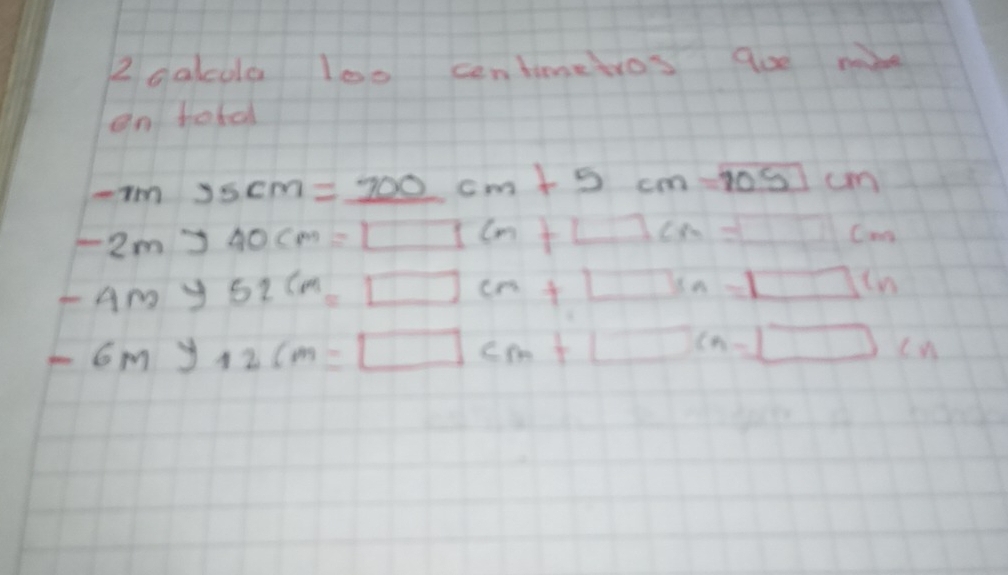 2 calcula los centimetros que mide
en total
-1m y 5cm = 100 cm + 5 cm = 105 cm
-2m y 40cm = cm + cm = cm
-4m y 52cm = cm + cm = cm
-6m y 12cm = cm + cm = cm